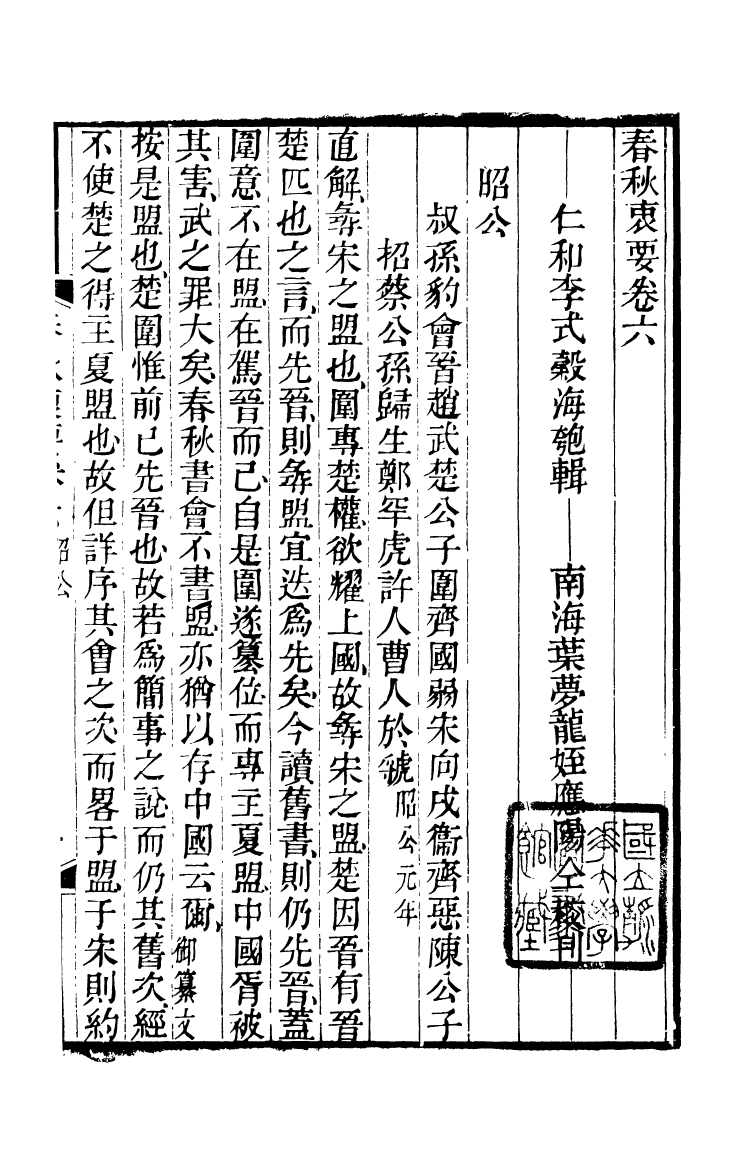 春秋衷要卷六
仁和李式穀海匏輯　南海葉夢龍姪應陽仝校刊
昭公
叔孫豹會晉趙武楚公子圍齊國弱宋向戌衞齊惡陳公子
招蔡公孫歸生鄭罕虎許人曹人於虢昭公元年
直解尋宋之盟也圍專楚權欲耀上國故尋宋之盟楚因晉有晉
楚匹也之言而先晉則尋盟宜迭爲先矣今讀舊書則仍先晉蓋
圍意不在盟在駕晉而已自是圍遂篡位而專主夏盟中國胥被
其害武之罪大矣春秋書會不書盟亦猶以存中國云爾御纂文
按是盟也楚圍惟前已先晉也故若爲簡事之說而仍其舊次經
不使楚之得主夏盟也故但詳序其會之次而畧于盟子宋則約
昭公
國立
大學
館藏